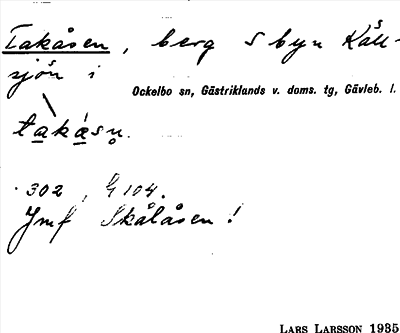 Takåsen, berg S byn Käll-
sjön i
Ockelbo sn, Gästriklands v. doms. tg, Gävleb. l.
takåsn̥.
302, G 104.
Jmf Skålåsen!
LARS LARSSON 1935